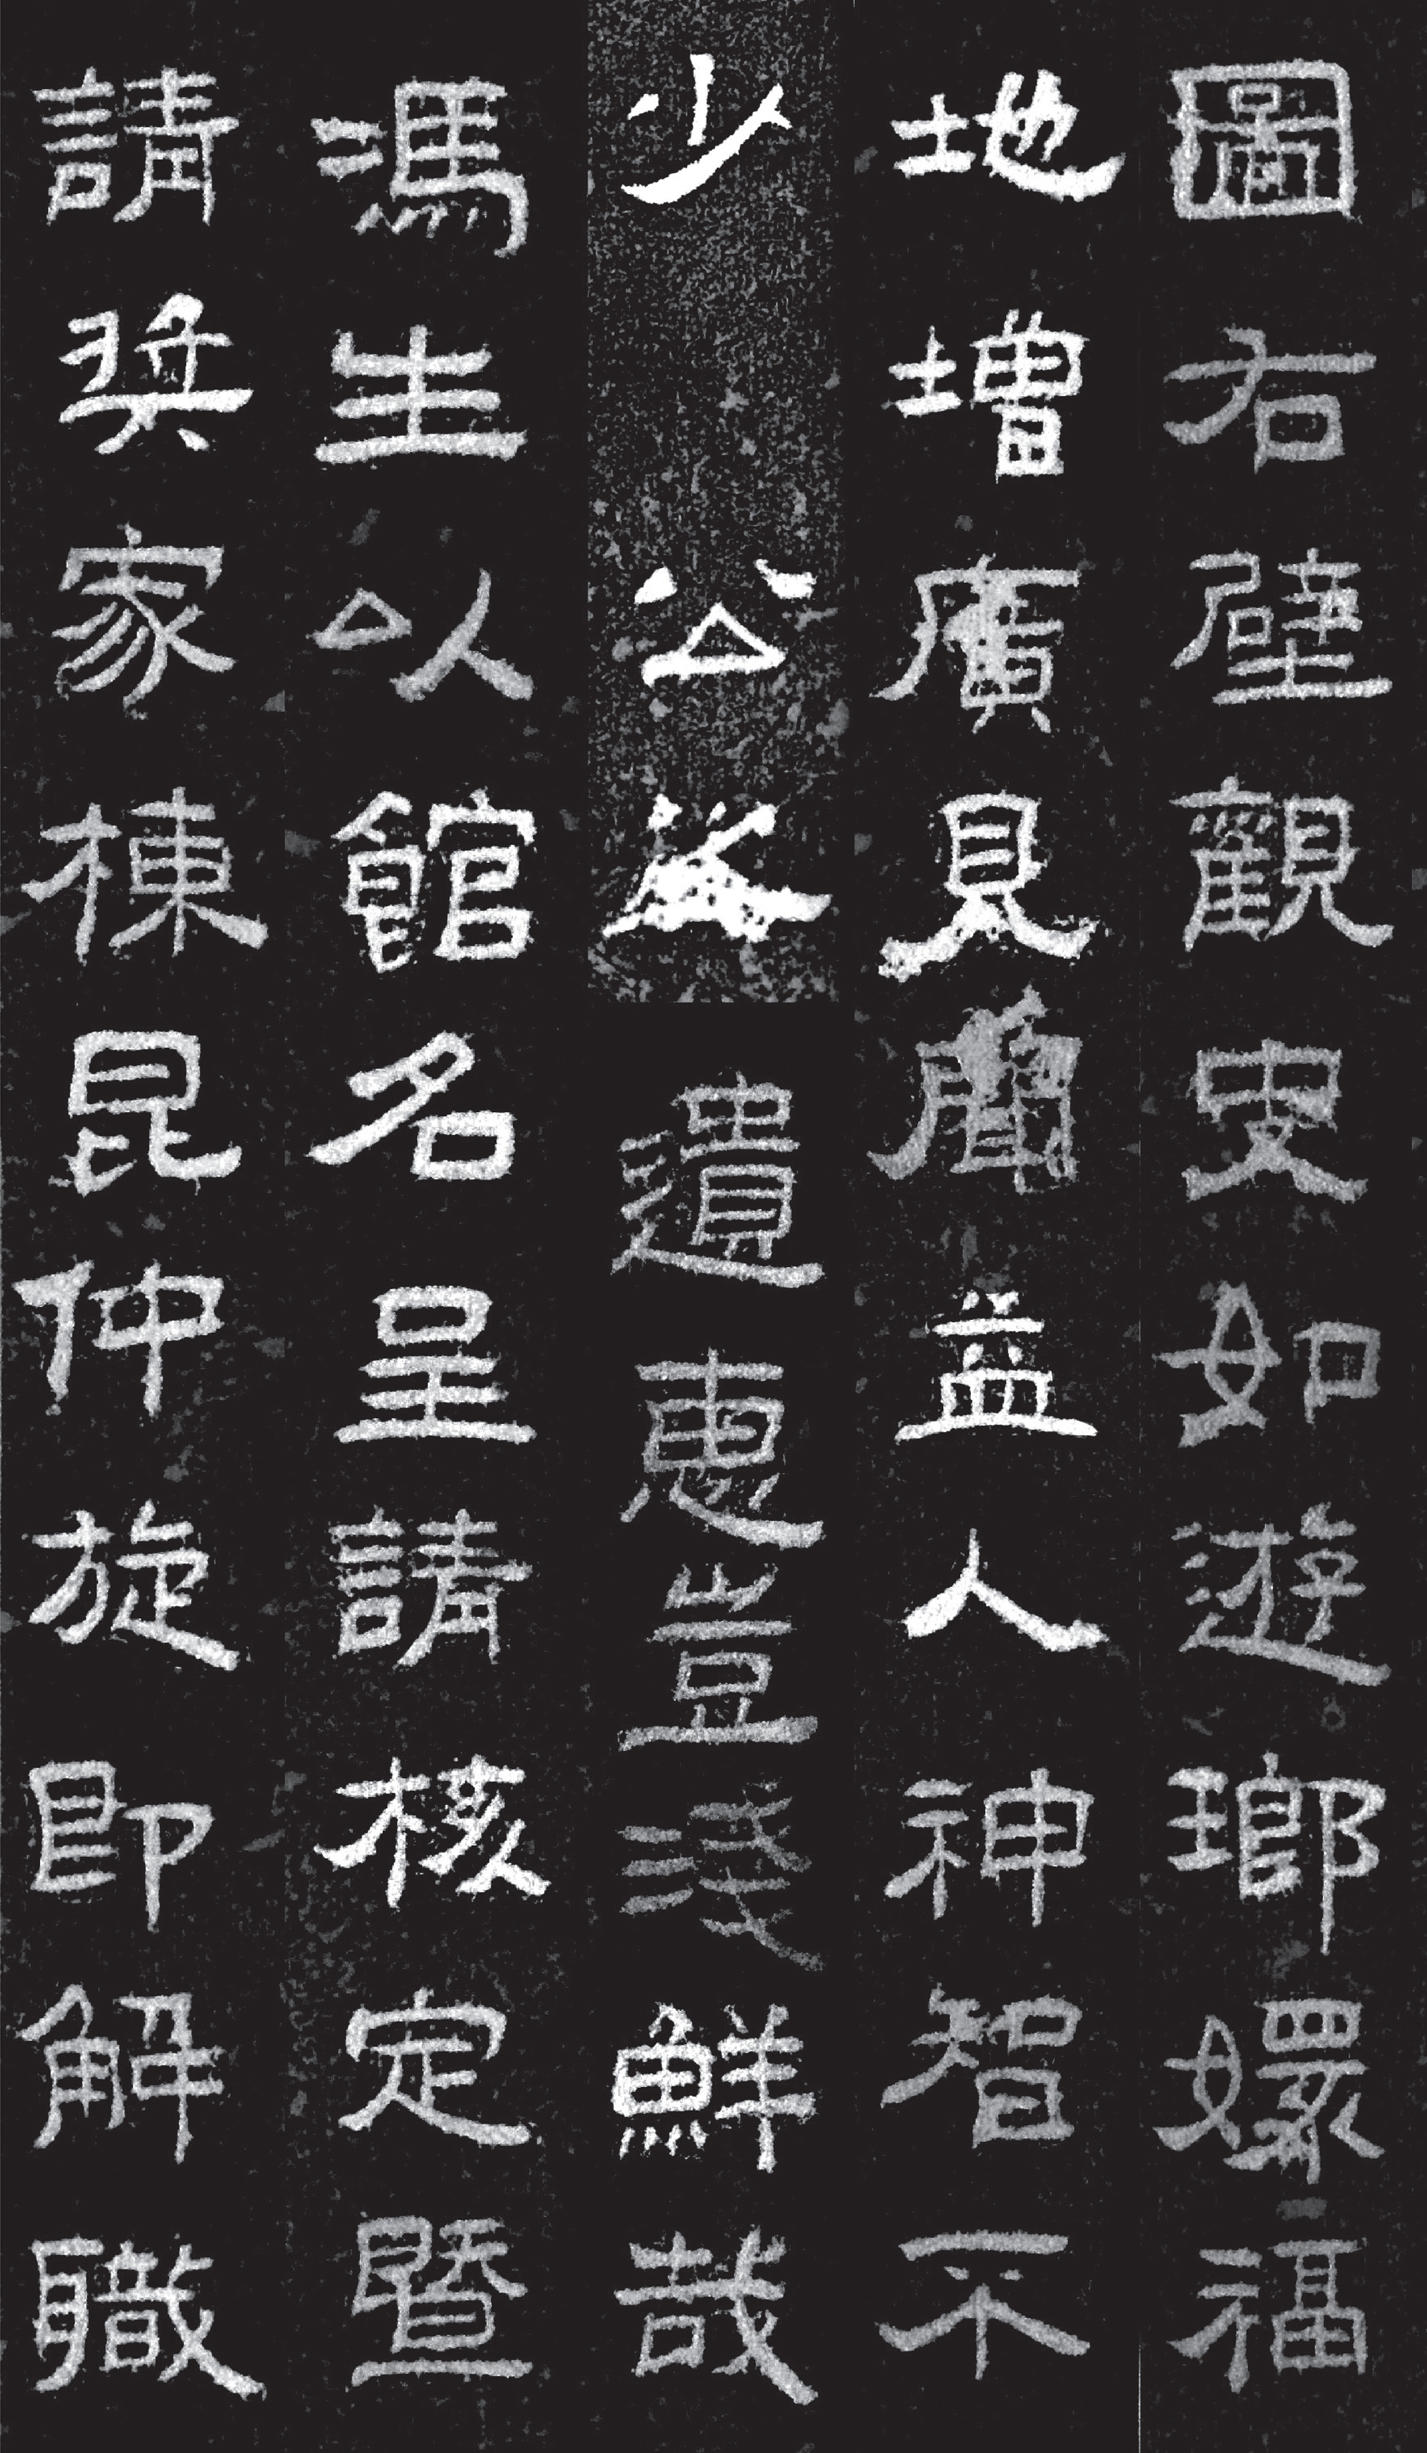 圖右壁觀史如遊瑯嬛福
地增廣見聞益人神智不
少公之遺惠豈淺鮮哉
馮生以館名呈請核定暨
請奬家棟昆仲旋即解職